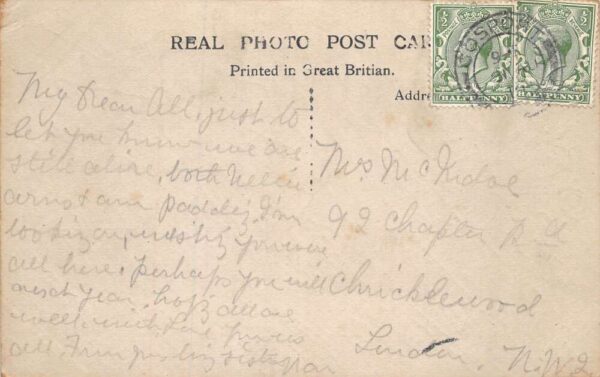 REAL PHOTO POST CAR
Printed in Great Britian.
Addre
GOSPORT
HALFPENNY
HALFPENNY
My Dear All, just to
let you know we are
still alive, both Nellie
and am paddling I'm
looking on, wishing you were
all here, perhaps you will
next year, hope all are
well with love from us
all, from
Mrs
92 Chapter Rd
Chricklewood
London. N.W.2.